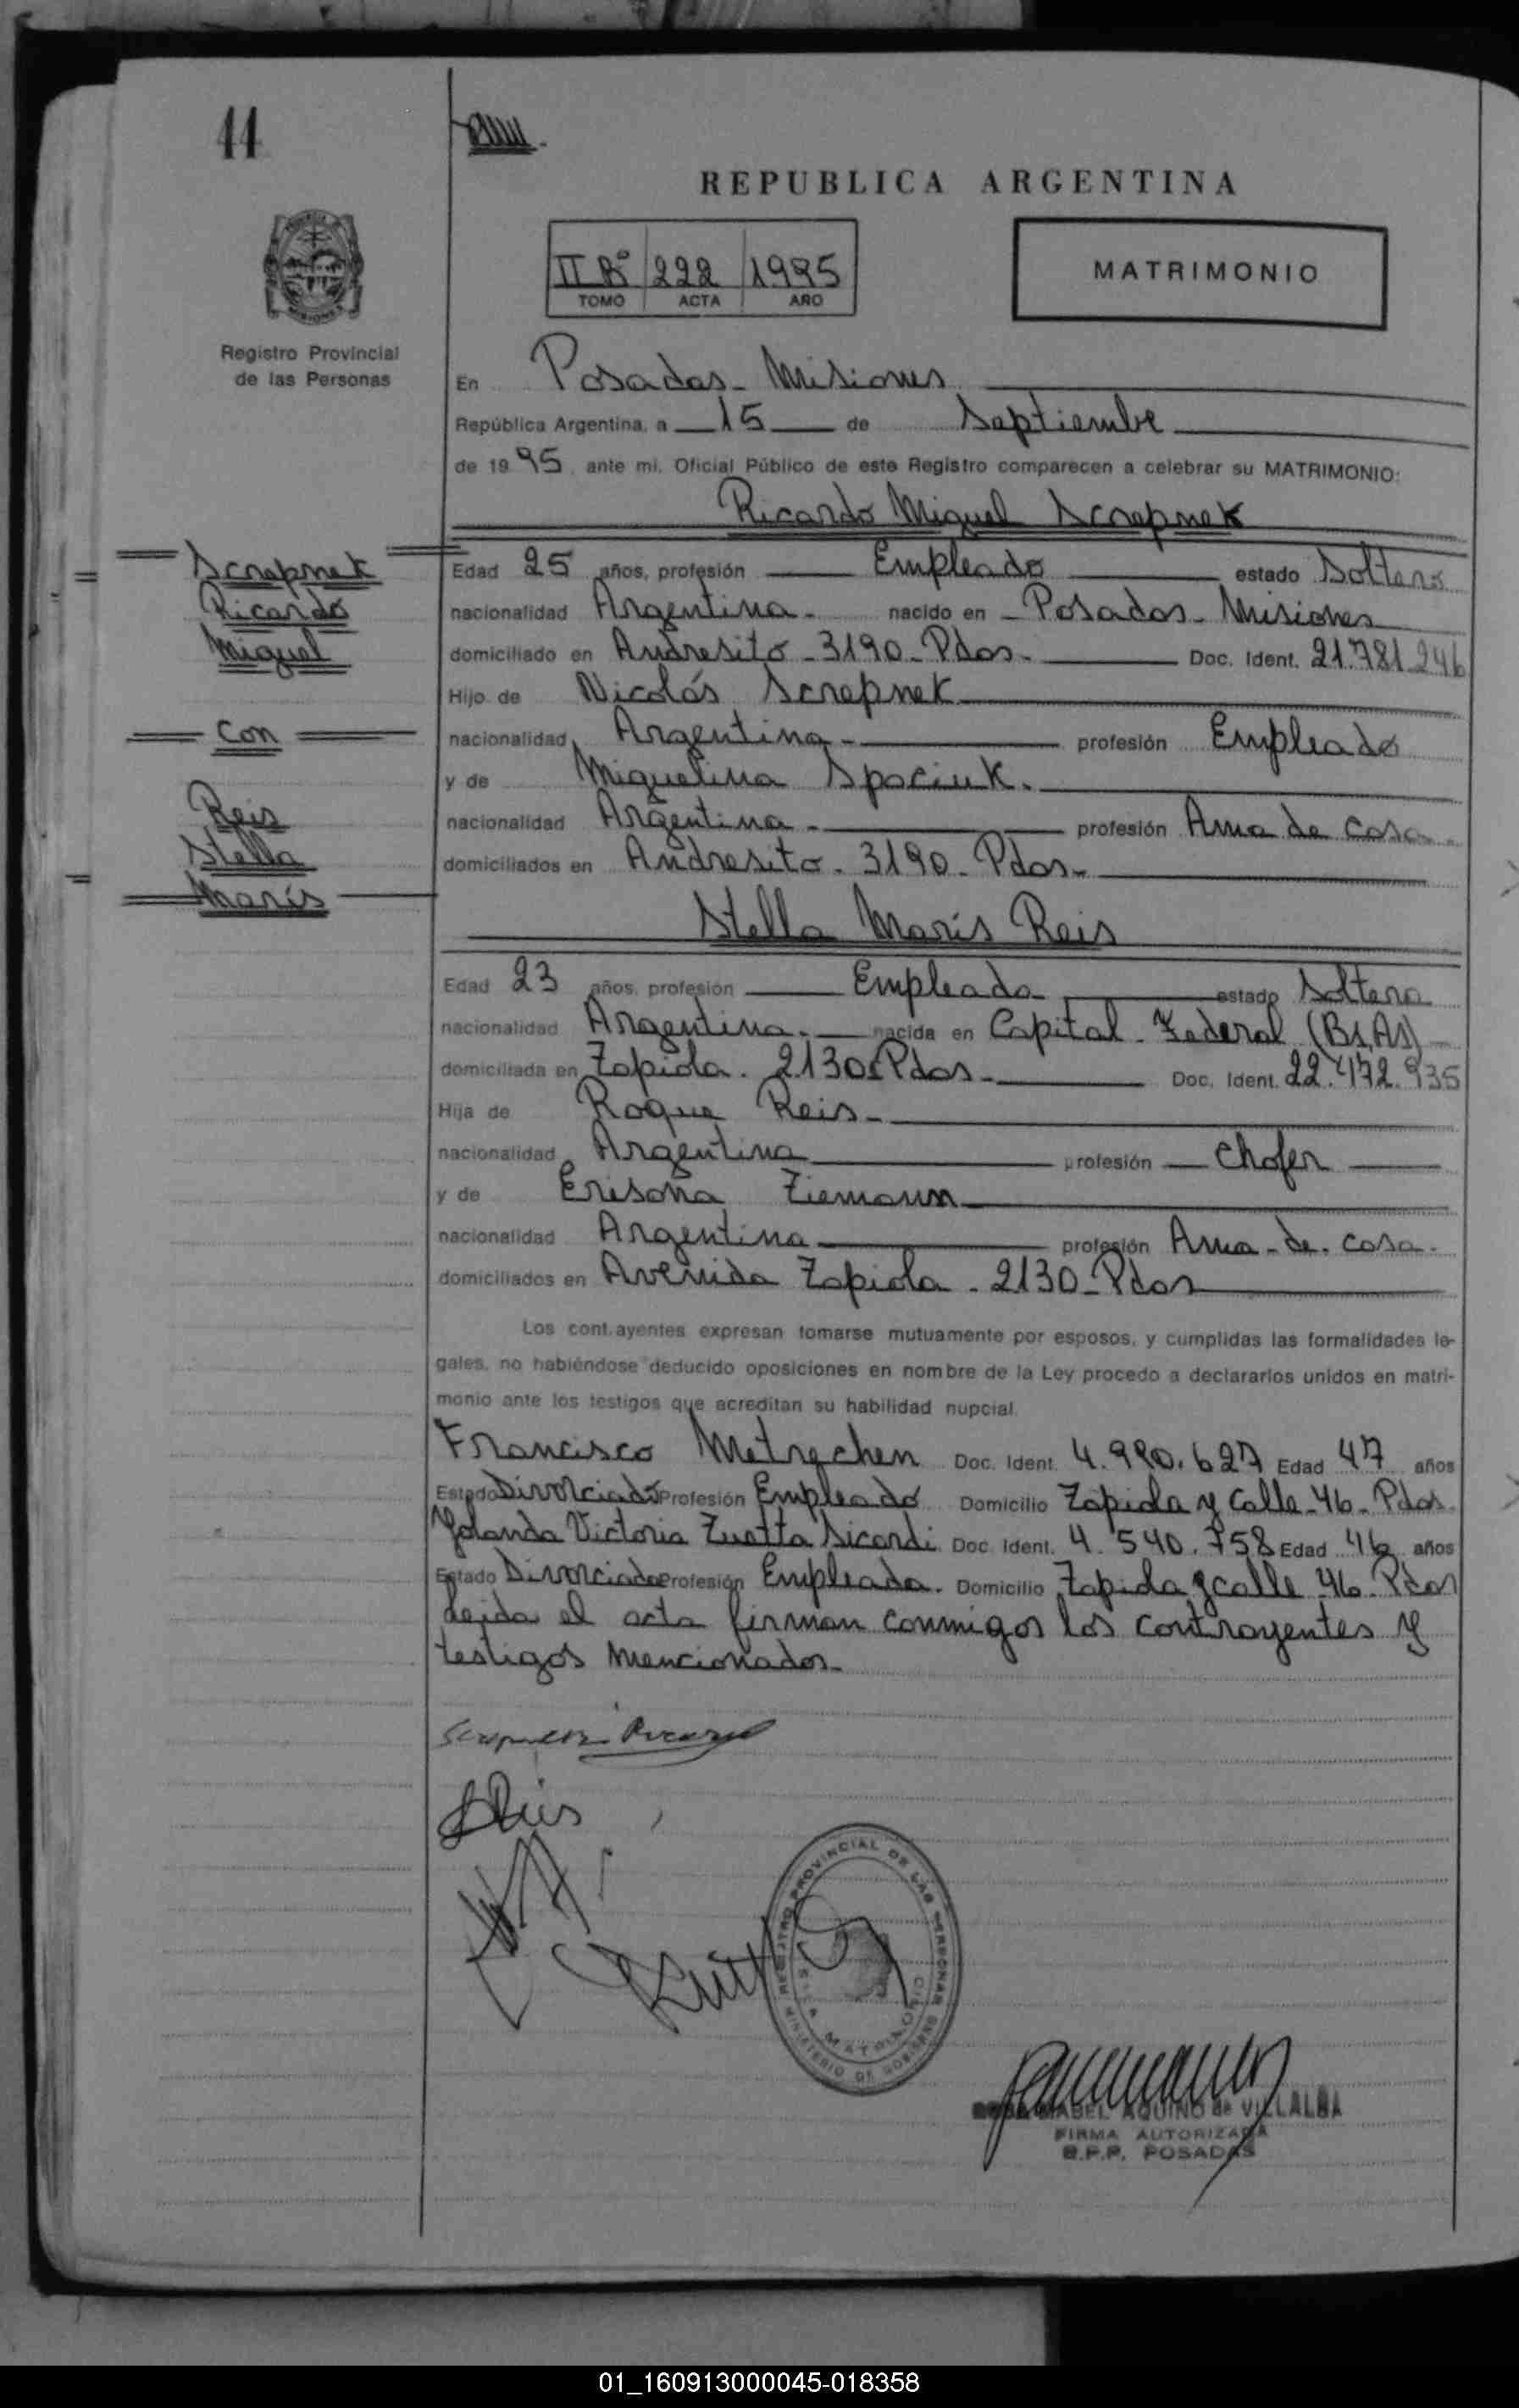 44
REPUBLICA ARGENTINA
II Bº 222 1995
TOMO ACTA AÑO
MATRIMONIO
Registro Provincial
de las Personas
En Posadas - Misiones
República Argentina, a 15 de Septiembre
de 1995, ante mi, Oficial Público de este Registro comparecen a celebrar su MATRIMONIO:
Ricardo Miguel Screpnek
Screpnek
Ricardo
Miguel
Con
Reis
Stella
Maris
Edad 25 años, profesión Empleado estado Soltero
nacionalidad Argentina - nacido en - Posadas - Misiones
domiciliado en Andresito - 3190 - Pdas - Doc. Ident. 21.781.246
Hijo de Nicolás Screpnek
nacionalidad Argentina - profesión Empleado
y de Miguelina Spaciuk.
nacionalidad Argentina - profesión Ama de casa
domiciliados en Andresito - 3190 - Pdas -
Stella Maris Reis
Edad 23 años, profesión Empleada estado Soltera
nacionalidad Argentina. nacida en Capital Federal (Bs.As)
domiciliada en Zapiola. 2130 Pdas - Doc. Ident. 22.472.935
Hija de Roque Reis -
nacionalidad Argentina profesión Chofer
y de Erisona Ziemann
nacionalidad Argentina profesión Ama - de. casa.
domiciliados en Avenida Zapiola - 2130 - Pdas
Los contrayentes expresan tomarse mutuamente por esposos, y cumplidas las formalidades le-
gales, no habiéndose deducido oposiciones en nombre de la Ley procedo a declararlos unidos en matri-
monio ante los testigos que acreditan su habilidad nupcial.
Francisco Metrechen Doc. Ident. 4.990.627 Edad 47 años
Estado Divorciado Profesión Empleado Domicilio Zapiola y Calle - 46 - Pdas.
Yolanda Victoria Zuetta Sicardi Doc. Ident. 4.540.758 Edad 46 años
Estado Divorciada Profesión Empleada. Domicilio Zapiola y calle 46 - Pdas
Leida el acta firman conmigos los contrayentes y
testigos mencionados -
REGISTRO PROVINCIAL DE LAS PERSONAS
MINISTERIO DE GOBIERNO
MABEL AQUINO de VILLALBA
FIRMA AUTORIZADA
R.P.P. POSADAS
01_160913000045-018358